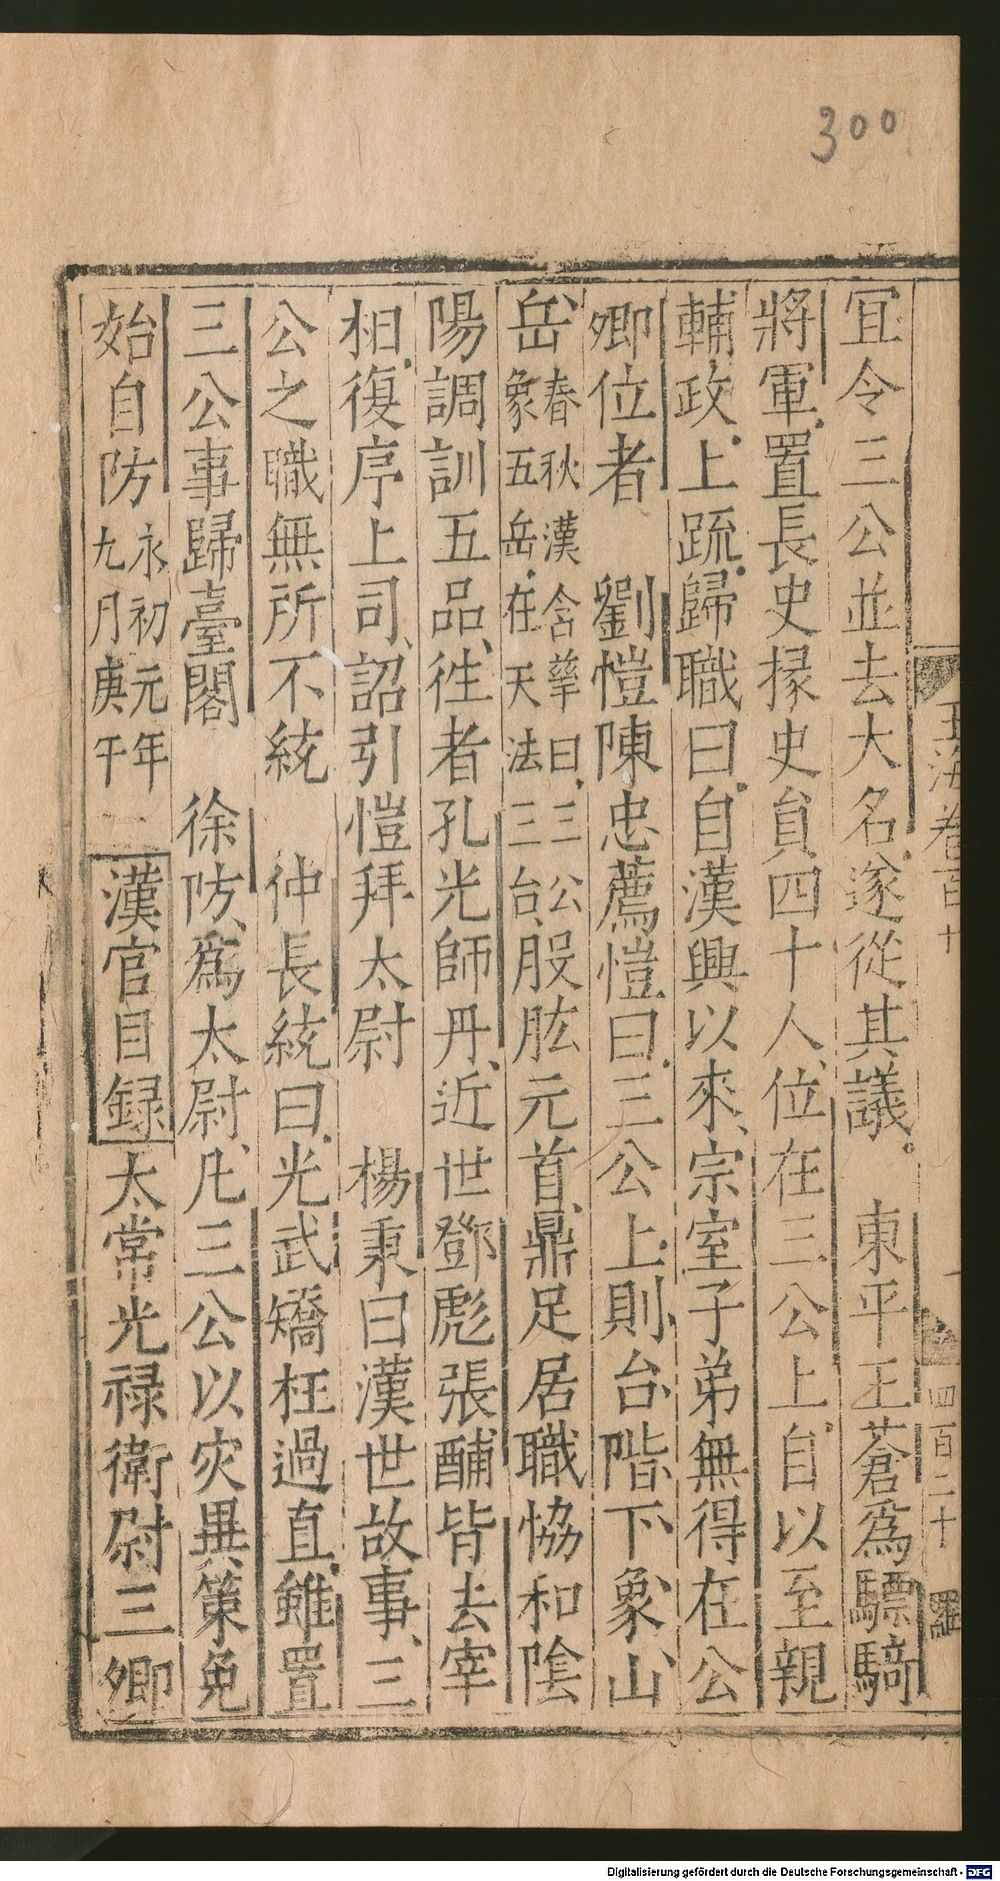 300
玉海卷百十
四百二十
羅
宜令三公並去大名遂從其議 東平王蒼爲驃騎
將軍置長史掾史員四十人位在三公上自以至親
輔政上疏歸職曰自漢興以來宗室子弟無得在公
卿位者 劉愷陳忠薦愷曰三公上則台階下象山
岳春秋漢含孳曰三公象五岳在天法三台股肱元首鼎足居職恊和陰
陽調訓五品徃者孔光師丹近世鄧彪張酺皆去宰
相復序上司詔引愷拜太尉 楊秉曰漢世故事三
公之職無所不統 仲長統曰光武矯枉過直雖置
三公事歸臺閣 徐防爲太尉凡三公以灾異策免
始自防永初元年九月庚午 漢官目録太常光禄衛尉三卿
Digitalisierung gefördert durch die Deutsche Forschungsgemeinschaft - DFG